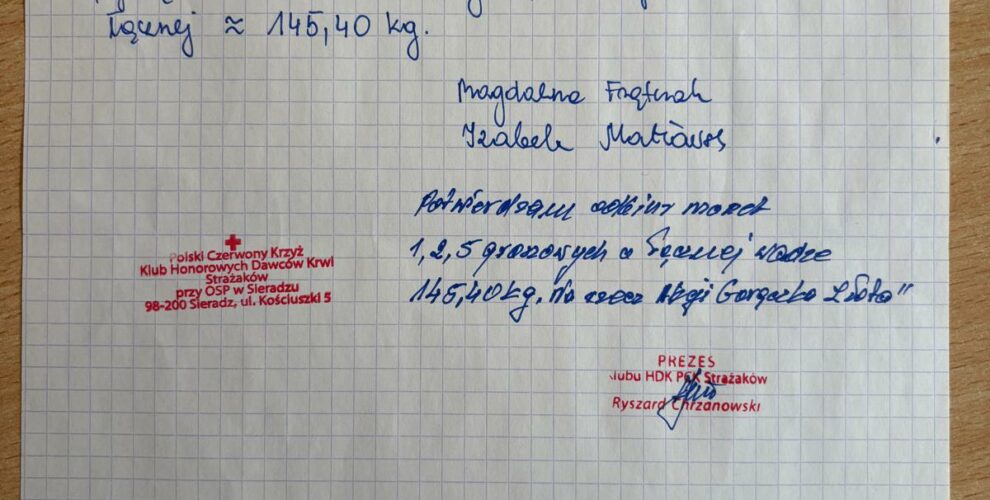 Łącznej ≈ 145,40 kg.
Magdalena
Izabela
Potwierdzam odbiór monet
1, 2, 5 groszowych o łącznej wadze
145,40 kg. na rzecz Akcji Gorączka Złota"
Polski Czerwony Krzyż
Klub Honorowych Dawców Krwi
Strażaków
przy OSP w Sieradzu
98-200 Sieradz, ul. Kościuszki 5
PREZES
Klubu HDK PCK Strażaków
Ryszard Chrzanowski